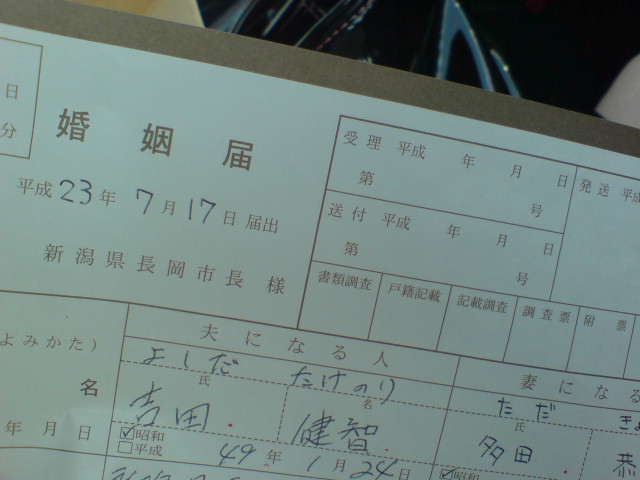 日
分
婚姻届
平成23年 7月17日届出
新潟県長岡市長 様
受理 平成 年 月 日
第 号
送付 平成 年 月 日
第 号
発送 平成
書類調査 戸籍記載 記載調査 調査票 附票
夫になる人
妻になる
よみかた)
よしだ たけのり
ただ
氏 名
氏
名
吉田 健智
多田 恭
年月日
☑昭和
□平成
49年 1月24日
☑昭和